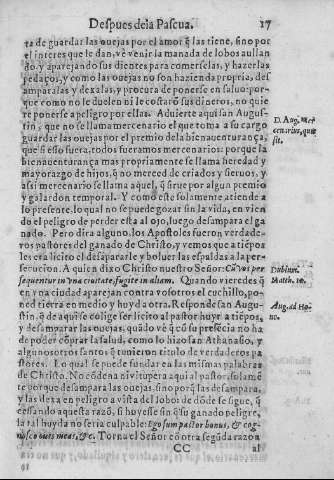 Despues dela Pascua. 17
ra de guardar las ouejas por el amor q̃ las tiene, sino por
el interes que le dan, vè venir la manada de lobos aullan
do, y aparejando sus dientes para comerselas, y hazerlas
pedaços, y como las ouejas no son hazienda propria, des
amparalas y dexalas, y procura de ponerse en saluo: por-
que como no le duelen ni le costarõ sus dineros, no quie
re ponerse a peligro por ellas. Aduierte aqui san Augus-
tin, que no se llama mercenario el que toma a su cargo
guardar las ouejas por el premio de la bienauenturança,
que si esso fuera, todos fueramos mercenarios: porque la
bienauenturança mas propriamente se llama heredad y
mayorazgo de hijos, q̃ no merced de criados y sieruos, y
assi mercenario se llama aquel, q̃ sirue por algun premio
y galardon temporal. Y como este solamente atiende a
lo presente, lo qual no se puede gozar sin la vida, en vien
do el peligro de perder esta al ojo, luego desampara el ga
nado. Pero dira alguno, los Apostoles fueron verdade-
ros pastores del ganado de Christo, y vemos que a tiẽpos
les era licito el desapararle y boluer las espaldas a la per-
secucion. A quien dixo Christo nuestro Señor: Cũ vos per
sequentur in vna ciuitate, fugite in aliam. Quando vieredes q̃
en vna ciudad aparejan contra vosotros el cuchillo, po-
ned tierra en medio y huyd a otra. Responde san Augu-
stin, q̃ de aqui se colige ser licito al pastor huyr a tiẽpos,
y desamparar las ouejas, quãdo vè q̃ cõ su presẽcia no ha
de poder cõprar la salud, como lo hizo san Athanasio, y
algunos otros santos q̃ tuuieron titulo de verdaderos pa
stores. Lo qual se puede fundar en las mismas palabras
de Christo. No cõdena ni vitupera aqui al pastor solamẽ
te porque desampara las ouejas, sino porq̃ las desampara,
y las dexa en peligro a vista del lobo de dõde se sigue, q̃
cessando aquesta razõ, si huyesse sin q̃ su ganado peligre,
la tal huyda no seria culpable: Ego sum pastor bonus, & cog-
nosco oues meas, &c. Torna el Señor cõtra segũda razon
CC al
D. Aug. mer
cenarius, quis
sit.
Dubium.
Matth. 10.
Aug. ad Ho-
no.